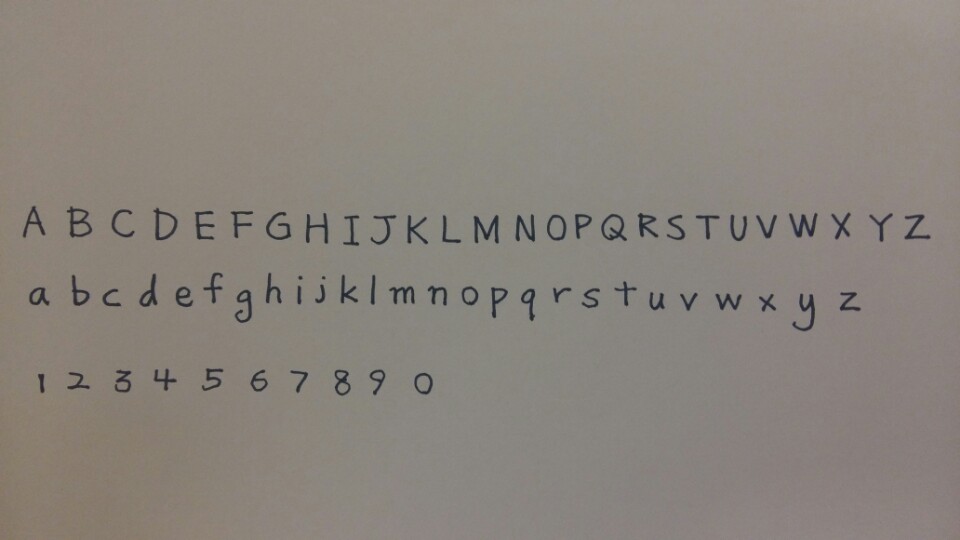 A B C D E F G H I J K L M N O P Q R S T U V W X Y Z
a b c d e f g h i j k l m n o p q r s t u v w x y z
1 2 3 4 5 6 7 8 9 0